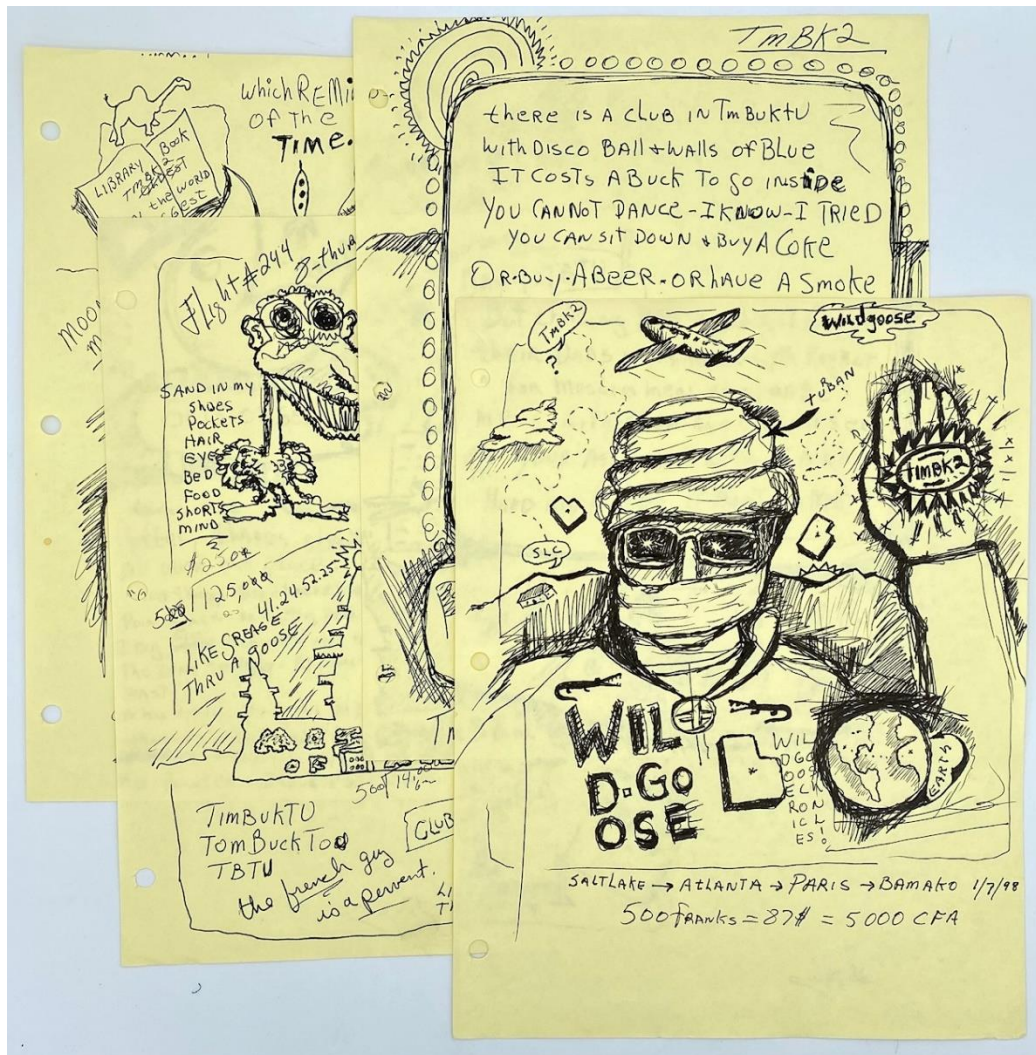 which REMi
OF The
TIME.
LIBRARY Book
TmBK2
the WORLD
MOO
TmBK2
there is A CLUB IN TmBUKTU
With DISCO BALL & WALLS of BLUE
IT COSTS A BUCK To GO INSIDE
YOU CANNOT DANCE - I KNOW - I TRIED
YOU CAN SIT DOWN & BUY A COKE
OR·BUY·A BEER·OR hAVE A Smoke
Flight #244
8-thur
SAND IN my
Shoes
Pockets
HAIR
EYE
BeD
FooD
shorts
MIND
$250
125,000
41.24.52.25
LIKE GREASE
THRU A GOOSE
TimBUKTU
TomBuckToo
TBTU
CLUB
the french guy
is a pervert.
Wildgoose
TmBK2
?
TURBAN
TIMBK2
SLC
WIL
D·GO
OSE
WIL
DGO
OSE
CH
RON
ICL
ES!
PARIS
SALTLAKE → ATLANTA → PARIS → BAMAKO 1/7/98
500 franks = 87$ = 5000 CFA